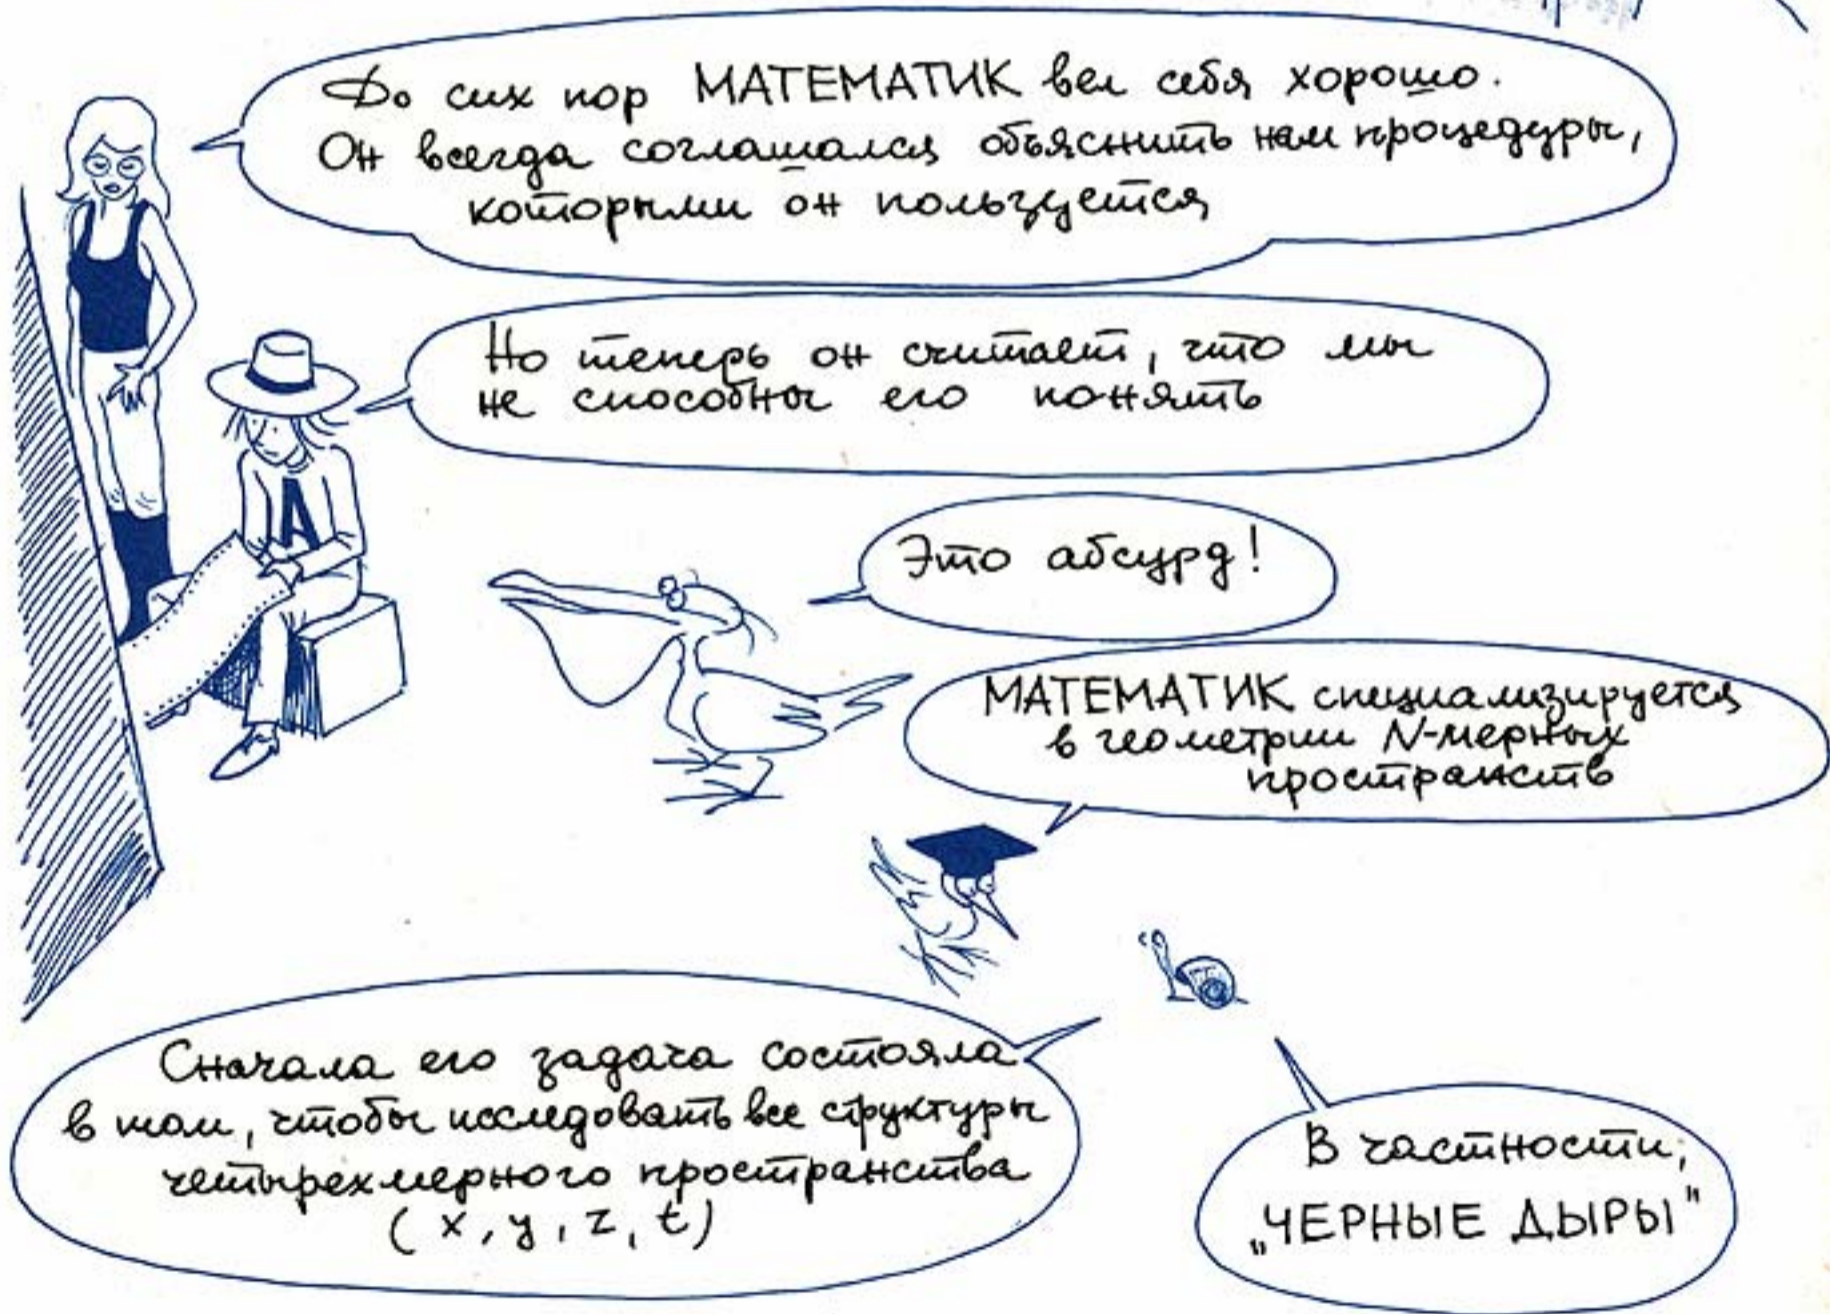 До сих пор МАТЕМАТИК вел себя хорошо.
Он всегда соглашался объяснить нам процедуры,
которыми он пользуется
Но теперь он считает, что мы
не способны его понять
A
Это абсурд!
МАТЕМАТИК специализируется
в геометрии N-мерных
пространств
Сначала его задача состояла
в том, чтобы исследовать все структуры
четырехмерного пространства
(x, y, z, t)
В частности,
„ЧЕРНЫЕ ДЫРЫ"